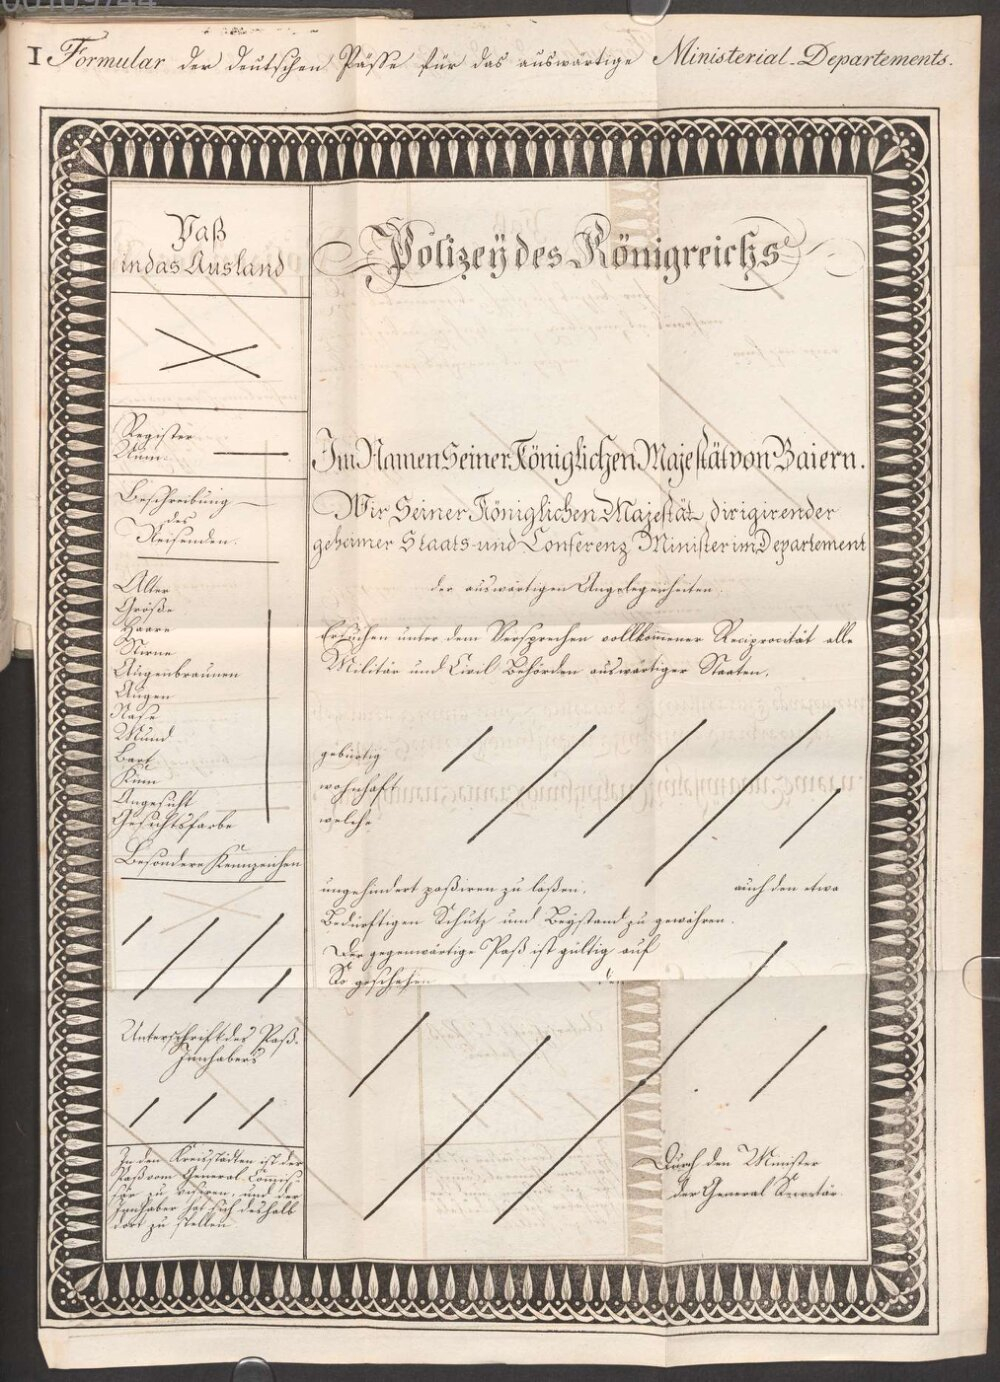 I Formular der deutschen Pässe für das auswärtige Ministerial-Departements.
Paß
in das Ausland
Register
Num:
Beschreibung
des
Reisenden.
Alter
Größe
Haare
Stirne
Augenbraunen
Augen
Nase
Mund
Bart
Kinn
Angesicht
Gesichtsfarbe
Besondere Kennzeichen
Unterschrift des Paß-
Innhabers
In den Kreisstädten ist der
Paß vom General-Commis-
sär zu visiren, und der
Innhaber hat sich deshalb
dort zu stellen.
Polizey des Königreichs
Im Namen Seiner Königlichen Majestät von Baiern.
Wir Seiner Königlichen Majestät dirigirender
geheimer Staats- und Conferenz Minister im Departement
der auswärtigen Angelegenheiten.
Ersuchen unter dem Versprechen vollkommener Reciprocität alle
Militär und Civil Behörden auswärtiger Staaten,
gebürtig
wohnhaft
welche
ungehindert paßiren zu laßen, auch den etwa
Bedürftigen Schutz und Beystand zu gewähren.
Der gegenwärtige Paß ist gültig auf
So geschehen den
Durch den Minister
der General Secretär.